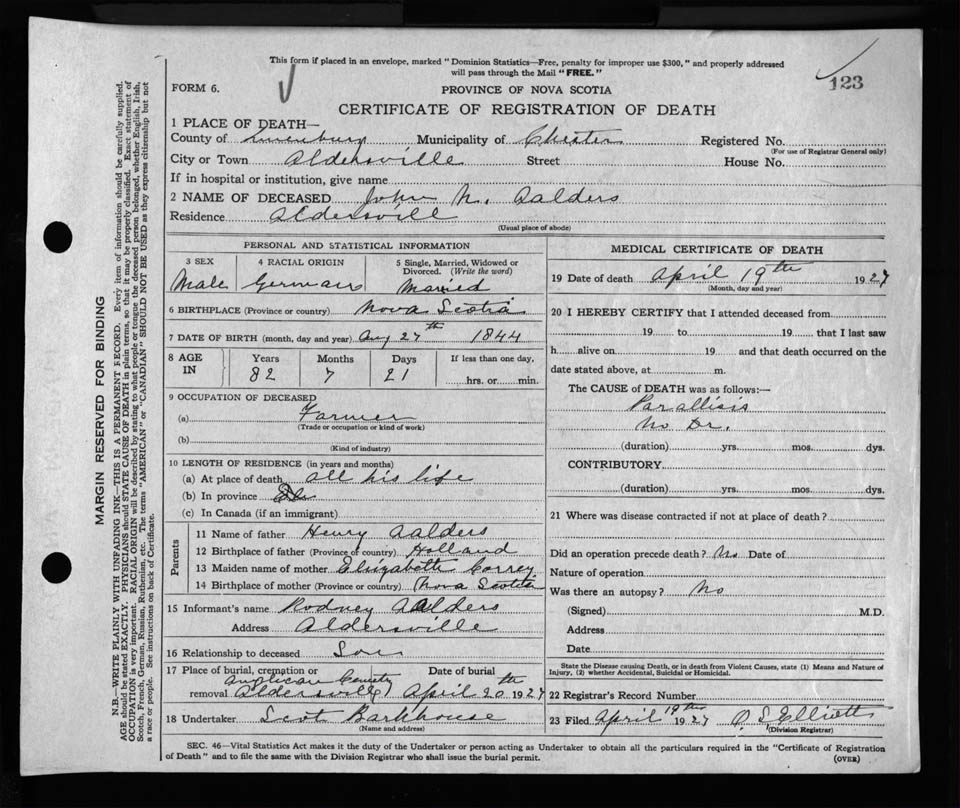 This form if placed in an envelope, marked "Dominion Statistics—Free, penalty for improper use $300," and properly addressed
will pass through the Mail "FREE."
123
FORM 6.
PROVINCE OF NOVA SCOTIA
CERTIFICATE OF REGISTRATION OF DEATH
1 PLACE OF DEATH—
County of Lunenburg Municipality of Chester Registered No.
(For use of Registrar General only)
City or Town Aldersville Street House No.
If in hospital or institution, give name
2 NAME OF DECEASED John N. Aalders
Residence Aldersvill
(Usual place of abode)
PERSONAL AND STATISTICAL INFORMATION
3 SEX 4 RACIAL ORIGIN 5 Single, Married, Widowed or
Divorced. (Write the word)
Male German Married
6 BIRTHPLACE (Province or country) Nova Scotia
7 DATE OF BIRTH (month, day and year) Aug 27th 1844
8 AGE IN Years Months Days If less than one day,
82 7 21 hrs. or min.
9 OCCUPATION OF DECEASED
(a) Farmer
(Trade or occupation or kind of work)
(b)
(Kind of industry)
10 LENGTH OF RESIDENCE (in years and months)
(a) At place of death all his life
(b) In province
(c) In Canada (if an immigrant)
Parents
11 Name of father Henry Aalders
12 Birthplace of father (Province or country) Holland
13 Maiden name of mother Elizabeth Correy
14 Birthplace of mother (Province or country) Nova Scotia
15 Informant's name Rodney Aalders
Address Aldersville
16 Relationship to deceased Son
17 Place of burial, cremation or Date of burial
Anglican Cemetry
removal Aldersville April 20th 1927
18 Undertaker Scot Barkhouse
(Name and address)
MEDICAL CERTIFICATE OF DEATH
19 Date of death April 19th 1927
(Month, day and year)
20 I HEREBY CERTIFY that I attended deceased from
19 to 19 that I last saw
h alive on 19 and that death occurred on the
date stated above, at m.
The CAUSE of DEATH was as follows:—
Parallisis
No Dr.
(duration) yrs. mos. dys.
CONTRIBUTORY
(duration) yrs. mos. dys.
21 Where was disease contracted if not at place of death?
Did an operation precede death? No Date of
Nature of operation
Was there an autopsy? No
(Signed) M.D.
Address
Date
State the Disease causing Death, or in death from Violent Causes, state (1) Means and Nature of
Injury, (2) whether Accidental, Suicidal or Homicidal.
22 Registrar's Record Number
23 Filed April 19th 1927 O. S. Elliott
(Division Registrar)
SEC. 46—Vital Statistics Act makes it the duty of the Undertaker or person acting as Undertaker to obtain all the particulars required in the "Certificate of Registration
of Death" and to file the same with the Division Registrar who shall issue the burial permit.
(OVER)
MARGIN RESERVED FOR BINDING
N.B.—WRITE PLAINLY WITH UNFADING INK—THIS IS A PERMANENT RECORD. Every item of information should be carefully supplied.
AGE should be stated EXACTLY. PHYSICIANS should STATE CAUSE OF DEATH in plain terms, so that it may be properly classified. Exact statement of
OCCUPATION is very important. RACIAL ORIGIN will be described by stating to what people or tongue the deceased person belonged, whether English, Irish,
Scotch, French, German, Russian, Ruthenian, etc. The terms "AMERICAN" or "CANADIAN" SHOULD NOT BE USED as they express citizenship but not
a race or people. See instructions on back of Certificate.